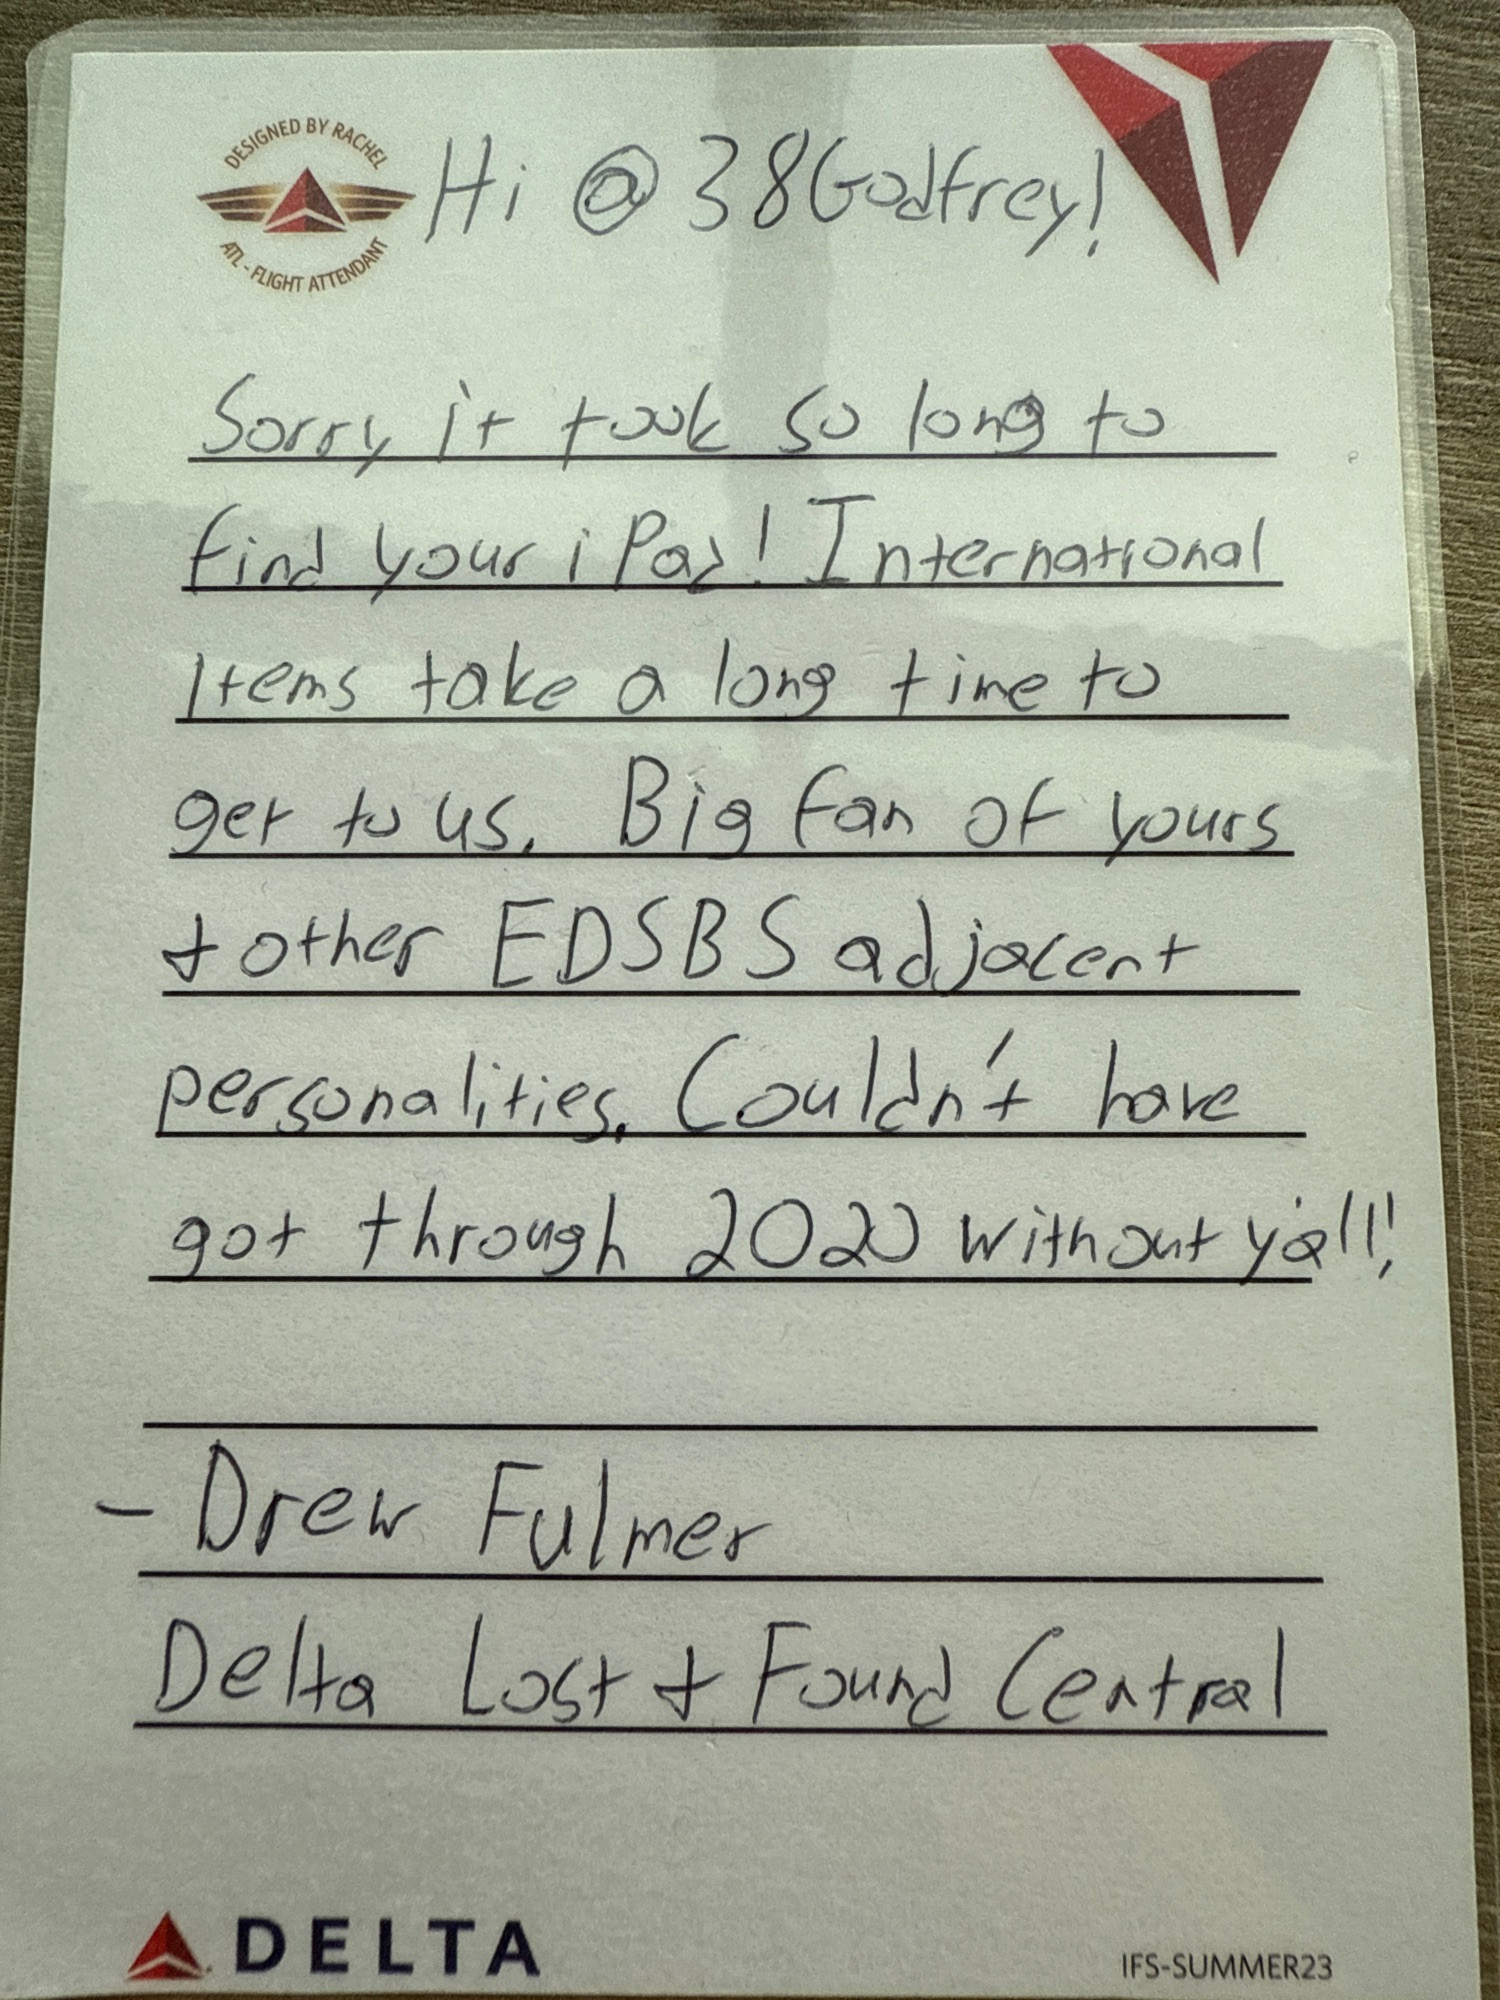 DESIGNED BY RACHEL
ATL - FLIGHT ATTENDANT
Hi @38Godfrey!
Sorry it took so long to
find your iPad! International
Items take a long time to
get to us. Big fan of yours
+ other EDSBS adjacent
personalities. Couldn't have
got through 2020 without y'all!
- Drew Fulmer
Delta Lost + Found Central
DELTA
IFS-SUMMER23